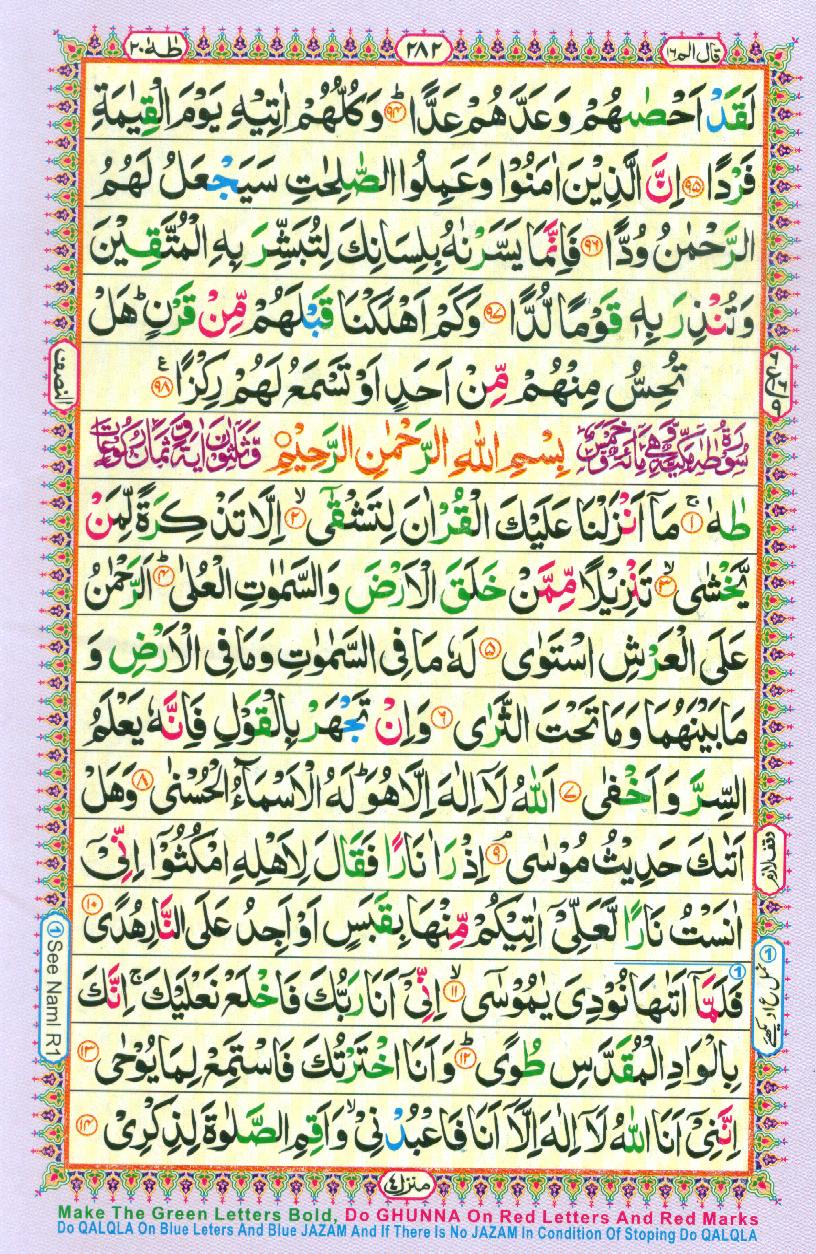 قال الم ١٦
٢٨٢
طٰهٰ ٢٠
لَقَدْ اَحْصٰىهُمْ وَعَدَّهُمْ عَدًّا ؕ ﴿۹۴﴾ وَكُلُّهُمْ اٰتِيْهِ يَوْمَ الْقِيٰمَةِ
فَرْدًا ﴿۹۵﴾ اِنَّ الَّذِيْنَ اٰمَنُوْا وَعَمِلُوا الصّٰلِحٰتِ سَيَجْعَلُ لَهُمُ
الرَّحْمٰنُ وُدًّا ﴿۹۶﴾ فَاِنَّمَا يَسَّرْنٰهُ بِلِسَانِكَ لِتُبَشِّرَ بِهِ الْمُتَّقِيْنَ
وَتُنْذِرَ بِهٖ قَوْمًا لُّدًّا ﴿۹۷﴾ وَكَمْ اَهْلَكْنَا قَبْلَهُمْ مِّنْ قَرْنٍ ؕ هَلْ
تُحِسُّ مِنْهُمْ مِّنْ اَحَدٍ اَوْ تَسْمَعُ لَهُمْ رِكْزًا ﴿۹۸﴾
النصف
بِسْمِ اللّٰهِ الرَّحْمٰنِ الرَّحِيْمِ
طٰهٰ ۚ ﴿۱﴾ مَاۤ اَنْزَلْنَا عَلَيْكَ الْقُرْاٰنَ لِتَشْقٰٓى ۙ ﴿۲﴾ اِلَّا تَذْكِرَةً لِّمَنْ
يَّخْشٰى ۙ ﴿۳﴾ تَنْزِيْلًا مِّمَّنْ خَلَقَ الْاَرْضَ وَالسَّمٰوٰتِ الْعُلٰى ؕ ﴿۴﴾ اَلرَّحْمٰنُ
عَلَى الْعَرْشِ اسْتَوٰى ﴿۵﴾ لَهٗ مَا فِى السَّمٰوٰتِ وَمَا فِى الْاَرْضِ وَ
مَا بَيْنَهُمَا وَمَا تَحْتَ الثَّرٰى ﴿۶﴾ وَاِنْ تَجْهَرْ بِالْقَوْلِ فَاِنَّهٗ يَعْلَمُ
السِّرَّ وَاَخْفٰى ﴿۷﴾ اَللّٰهُ لَاۤ اِلٰهَ اِلَّا هُوَ ؕ لَهُ الْاَسْمَآءُ الْحُسْنٰى ﴿۸﴾ وَهَلْ
اَتٰىكَ حَدِيْثُ مُوْسٰى ۘ ﴿۹﴾ اِذْ رَاٰ نَارًا فَقَالَ لِاَهْلِهِ امْكُثُوْۤا اِنِّىْۤ
وقف لازم
اٰنَسْتُ نَارًا لَّعَلِّىْۤ اٰتِيْكُمْ مِّنْهَا بِقَبَسٍ اَوْ اَجِدُ عَلَى النَّارِ هُدًى ﴿۱۰﴾
فَلَمَّاۤ اَتٰىهَا نُوْدِىَ يٰمُوْسٰى ؕ ﴿۱۱﴾ اِنِّىْۤ اَنَا رَبُّكَ فَاخْلَعْ نَعْلَيْكَ ۚ اِنَّكَ
① See Naml R1
بِالْوَادِ الْمُقَدَّسِ طُوًى ؕ ﴿۱۲﴾ وَاَنَا اخْتَرْتُكَ فَاسْتَمِعْ لِمَا يُوْحٰى ﴿۱۳﴾
اِنَّنِىْۤ اَنَا اللّٰهُ لَاۤ اِلٰهَ اِلَّاۤ اَنَا فَاعْبُدْنِىْ ۙ وَاَقِمِ الصَّلٰوةَ لِذِكْرِىْ ﴿۱۴﴾
منزل ٤
Make The Green Letters Bold, Do GHUNNA On Red Letters And Red Marks
Do QALQLA On Blue Leters And Blue JAZAM And If There Is No JAZAM In Condition Of Stoping Do QALQLA